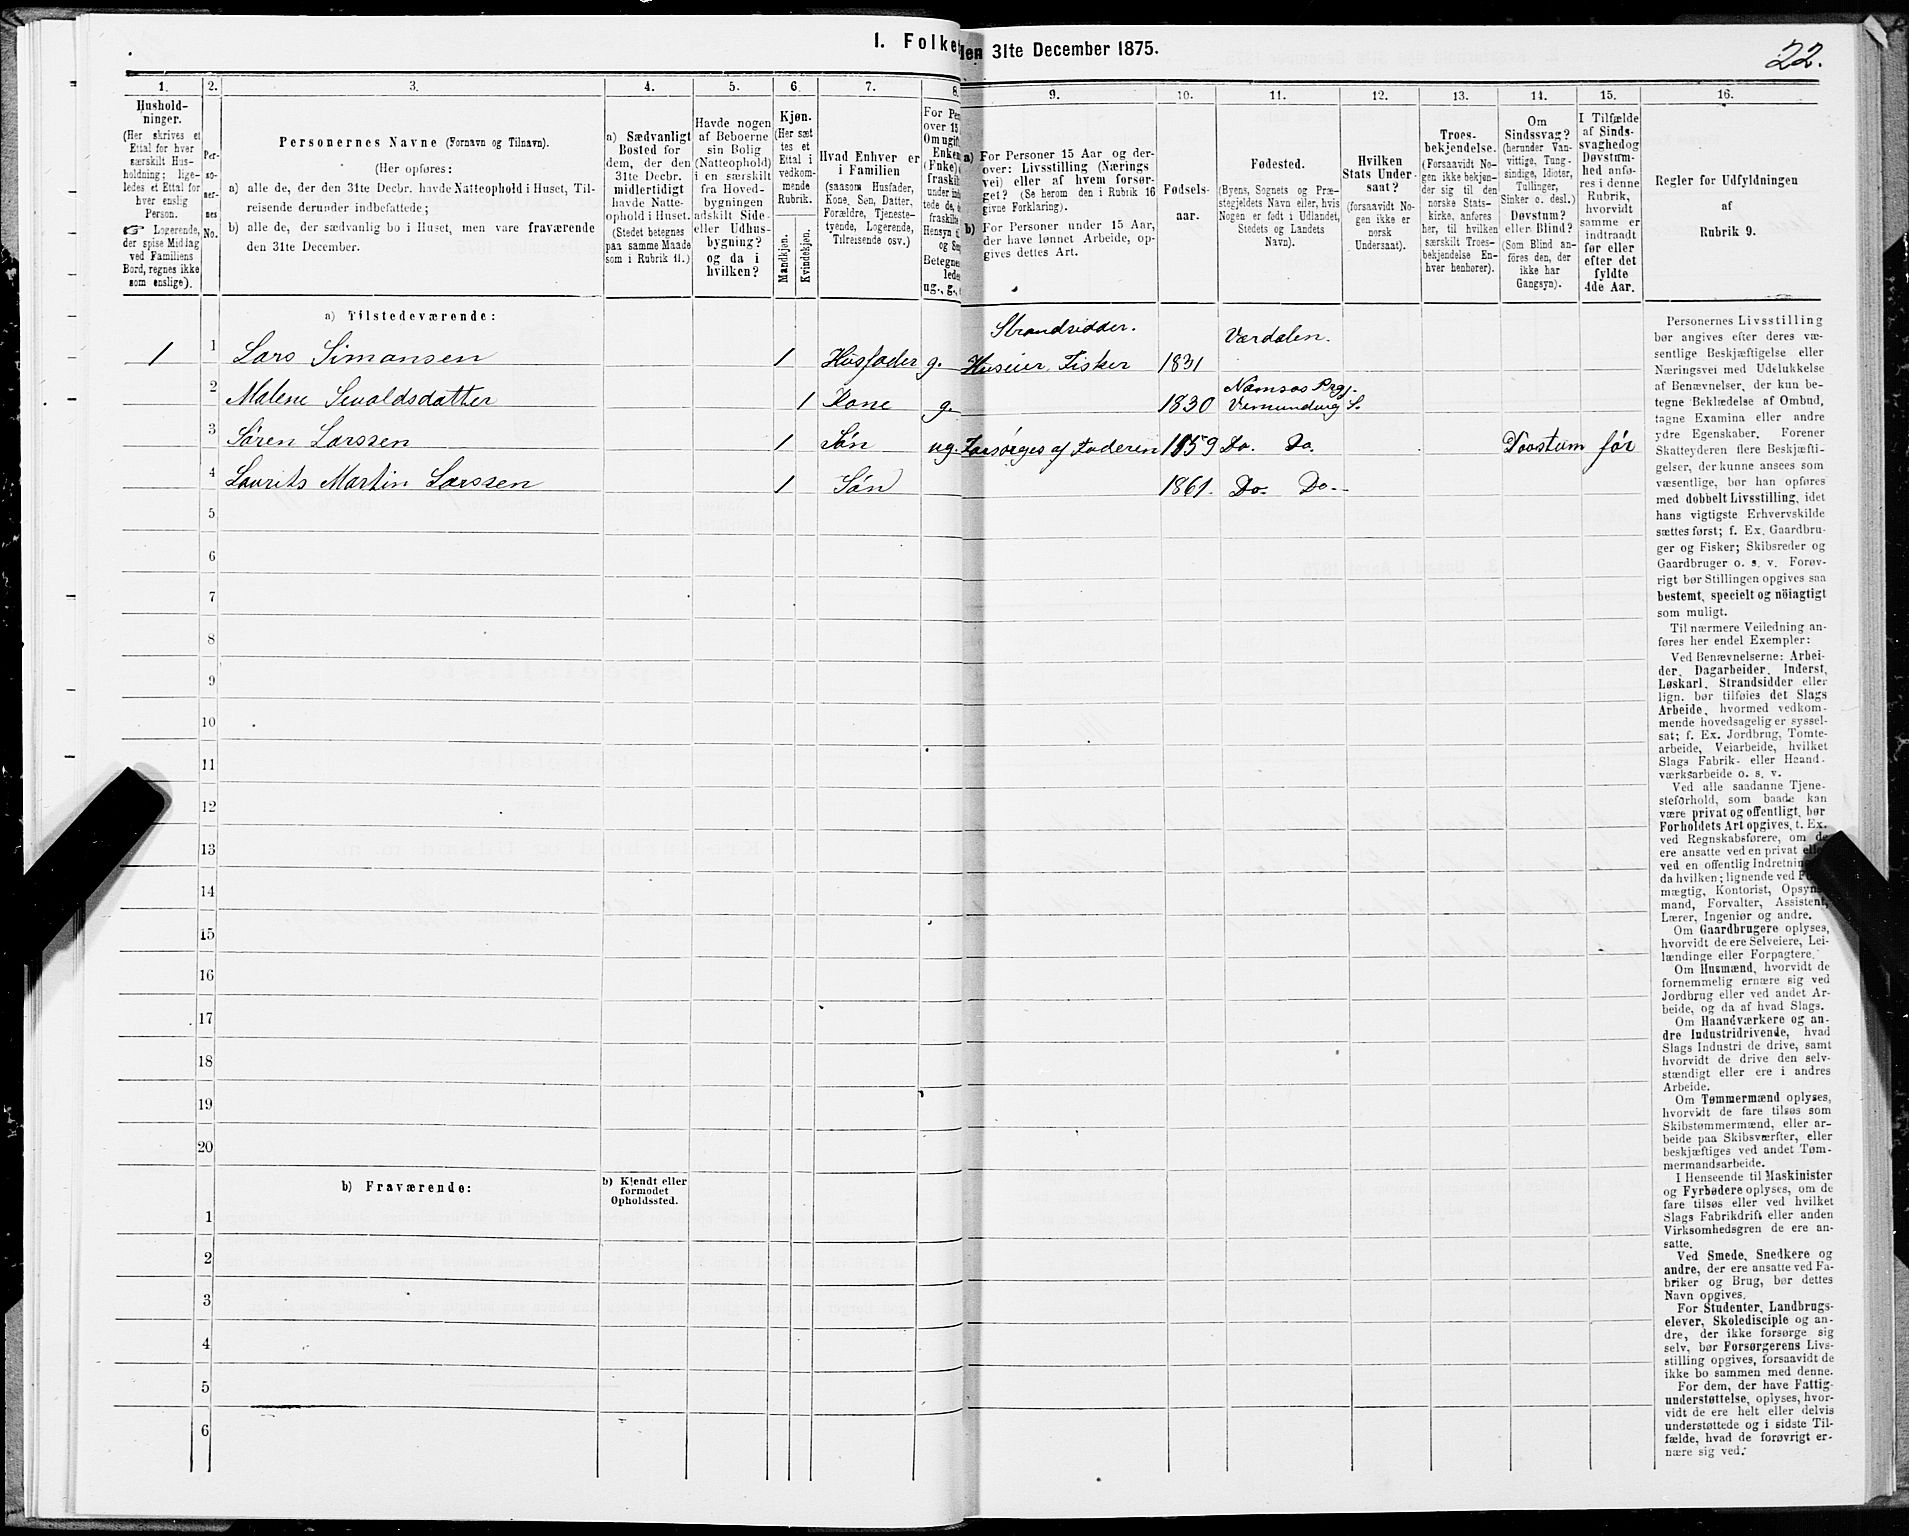 I. Folke
den 31te December 1875.
22.
1.
2.
3.
4.
5.
6.
7.
8.
9.
10.
11.
12.
13.
14.
15.
16.
Hushold-
ninger.
(Her skrives et
Ettal for hver
særskilt Hus-
holdning; lige-
ledes et Ettal for
hver enslig
Person.
☞ Logerende,
der spise Middag
ved Familiens
Bord, regnes ikke
som enslige).
Per-
so-
ner-
nes
No.
Personernes Navne (Fornavn og Tilnavn).
(Her opføres:
a) alle de, der den 31te Decbr. havde Natteophold i Huset, Til-
reisende derunder indbefattede;
b) alle de, der sædvanlig bo i Huset, men vare fraværende
den 31te December.
a) Sædvanligt
Bosted for
dem, der den
31te Decbr.
midlertidigt
havde Natte-
ophold i Huset.
(Stedet betegnes
paa samme Maade
som i Rubrik 11.)
Havde nogen
af Beboerne
sin Bolig
(Natteophold)
i en særskilt
fra Hoved-
bygningen
adskilt Side-
eller Udhus-
bygning?
og da i
hvilken?
Kjøn.
(Her sæt
tes et
Ettal i
vedkom-
mende
Rubrik.
Mandkjøn.
Kvindekjøn.
Hvad Enhver er
i Familien
(saasom Husfader,
Kone, Søn, Datter,
Forældre, Tjeneste-
tyende, Logerende,
Tilreisende osv.)
For Pe
over 15
Om ugift
Enken
(Fnke)
fraskilt
under indb
tede de,
fraskilte
Hensyn t
og Sen
Betegne
lede
ug., g.,
a) For Personer 15 Aar og der-
over: Livsstilling (Nærings
vei) eller af hvem forsør-
get? (Se herom den i Rubrik 16
givne Forklaring).
b) For Personer under 15 Aar,
der have lønnet Arbeide, op-
gives dettes Art.
Fødsels-
aar.
Fødested.
(Byens, Sognets og Præ-
stegjeldets Navn eller, hvis
Nogen er født i Udlandet,
Stedets og Landets
Navn).
Hvilken
Stats Under-
saat?
(forsaavidt No-
gen ikke er
norsk
Undersaat).
Troes-
bekjendelse.
(Forsaavidt No-
gen ikke bekjen-
der sig til den
norske Stats-
kirke, anføres
her, til hvilken
særskilt Troes-
bekjendelse En-
hver henhører).
Om
Sindssvag?
(herunder Van-
vittige, Tung-
sindige, Idioter,
Tullinger,
Sinker o. desl.)
Døvstum?
eller Blind?
(Som Blind an-
föres den, der
ikke har
Gangsyn).
I Tilfælde
af Sinds-
svaghed og
Døvstum-
hed anfø-
res i denne
Rubrik,
hvorvidt
samme er
indtraadt
før eller
efter det
fyldte
4de Aar.
Regler for Udfyldningen
af
Rubrik 9.
a) Tilstedeværende:
1 1 Lars Simonsen 1 Husfader g. Strandsidder. Huseier Fisker 1831 Værdalen.
2 Malene Sivaldsdatter 1 Kone g. 1830 Namsos Prgj. Vemundvig S.
3 Sören Larssen 1 Sön ug. Forsörges af Faderen 1859 Do. Do. Dövstum för
4 Laurits Martin Larssen 1 Sön 1861. Do. Do.
5
6
7
8
9
10
11
12
13
14
15
16
17
18
19
20
b) Fraværende:
b) Kjendt eller
formodet
Opholdssted.
1
2
3
4
5
6
Personernes Livsstilling
bør angives efter deres væ-
sentlige Beskjæftigelse eller
Næringsvei med Udelukkelse
af Benævnelser, der kun be-
tegne Beklædelse af Ombud,
tagne Examina eller andre
ydre Egenskaber. Forener
Skatteyderen flere Beskjæfti-
gelser, der kunne ansees som
væsentlige, bør han opføres
med dobbelt Livsstilling, idet
hans vigtigste Erhvervskilde
sættes først; f. Ex. Gaardbru-
ger og Fisker; Skibsreder og
Gaardbruger o. s. v. Forøv-
rigt bør Stillingen opgives saa
bestemt, specielt og nöiagtigt
som muligt.
Til nærmere Veiledning an-
føres her endel Exempler:
Ved Benævnelserne: Arbei-
der, Dagarbeider, Inderst,
Løskarl, Strandsidder eller
lign. bør tilføies det Slags
Arbeide, hvormed vedkom-
mende hovedsagelig er syssel-
sat; f. Ex. Jordbrug, Tomte-
arbeide, Veiarbeide, hvilket
Slags Fabrik- eller Haand-
værksarbeide o. s. v.
Ved alle saadanne Tjene-
steforhold, som baade kan
være privat og offentligt, bør
Forholdets Art opgives, t. Ex.
ved Regnskabsførere, om de
ere ansatte ved en privat eller
ved en offentlig Indretning og
da hvilken; lignende ved Fuld-
mægtig, Kontorist, Opsyns-
mand, Forvalter, Assistent,
Lærer, Ingeniør og andre.
Om Gaardbrugere oplyses,
hvorvidt de ere Selveiere, Lei-
lændinge eller Forpagtere.
Om Husmænd, hvorvidt de
fornemmelig ernære sig ved
Jordbrug eller ved andet Ar-
beide, og da af hvad Slags.
Om Haandværkere og an-
dre Industridrivende, hvad
Slags Industri de drive, samt
hvorvidt de drive den selv-
stændigt eller ere i andres
Arbeide.
Om Tømmermænd oplyses,
hvorvidt de fare tilsøs som
Skibstømmermænd, eller ar-
beide paa Skibsværfter, eller
beskjæftiges ved andet Tøm-
mermandsarbeide.
I Henseende til Maskinister
og Fyrbødere oplyses, om de
fare tilsøs eller ved hvilket
Slags Fabrikdrift eller anden
Virksomhedsgren de ere an-
satte.
Ved Smede, Snedkere og
andre, der ere ansatte ved Fa-
briker og Brug, bør dettes
Navn opgives.
For Studenter, Landbrugs-
elever, Skoledisciple og an-
dre, der ikke forsørge sig
selv, bør Forsørgerens Livs-
stilling opgives, forsaavidt de
ikke bo sammen med denne.
For dem, der have Fattig-
understøttelse, oplyses, hvor-
vidt de ere helt eller delvis
understøttede og i sidste Til-
fælde, hvad de forøvrigt er-
nære sig ved.